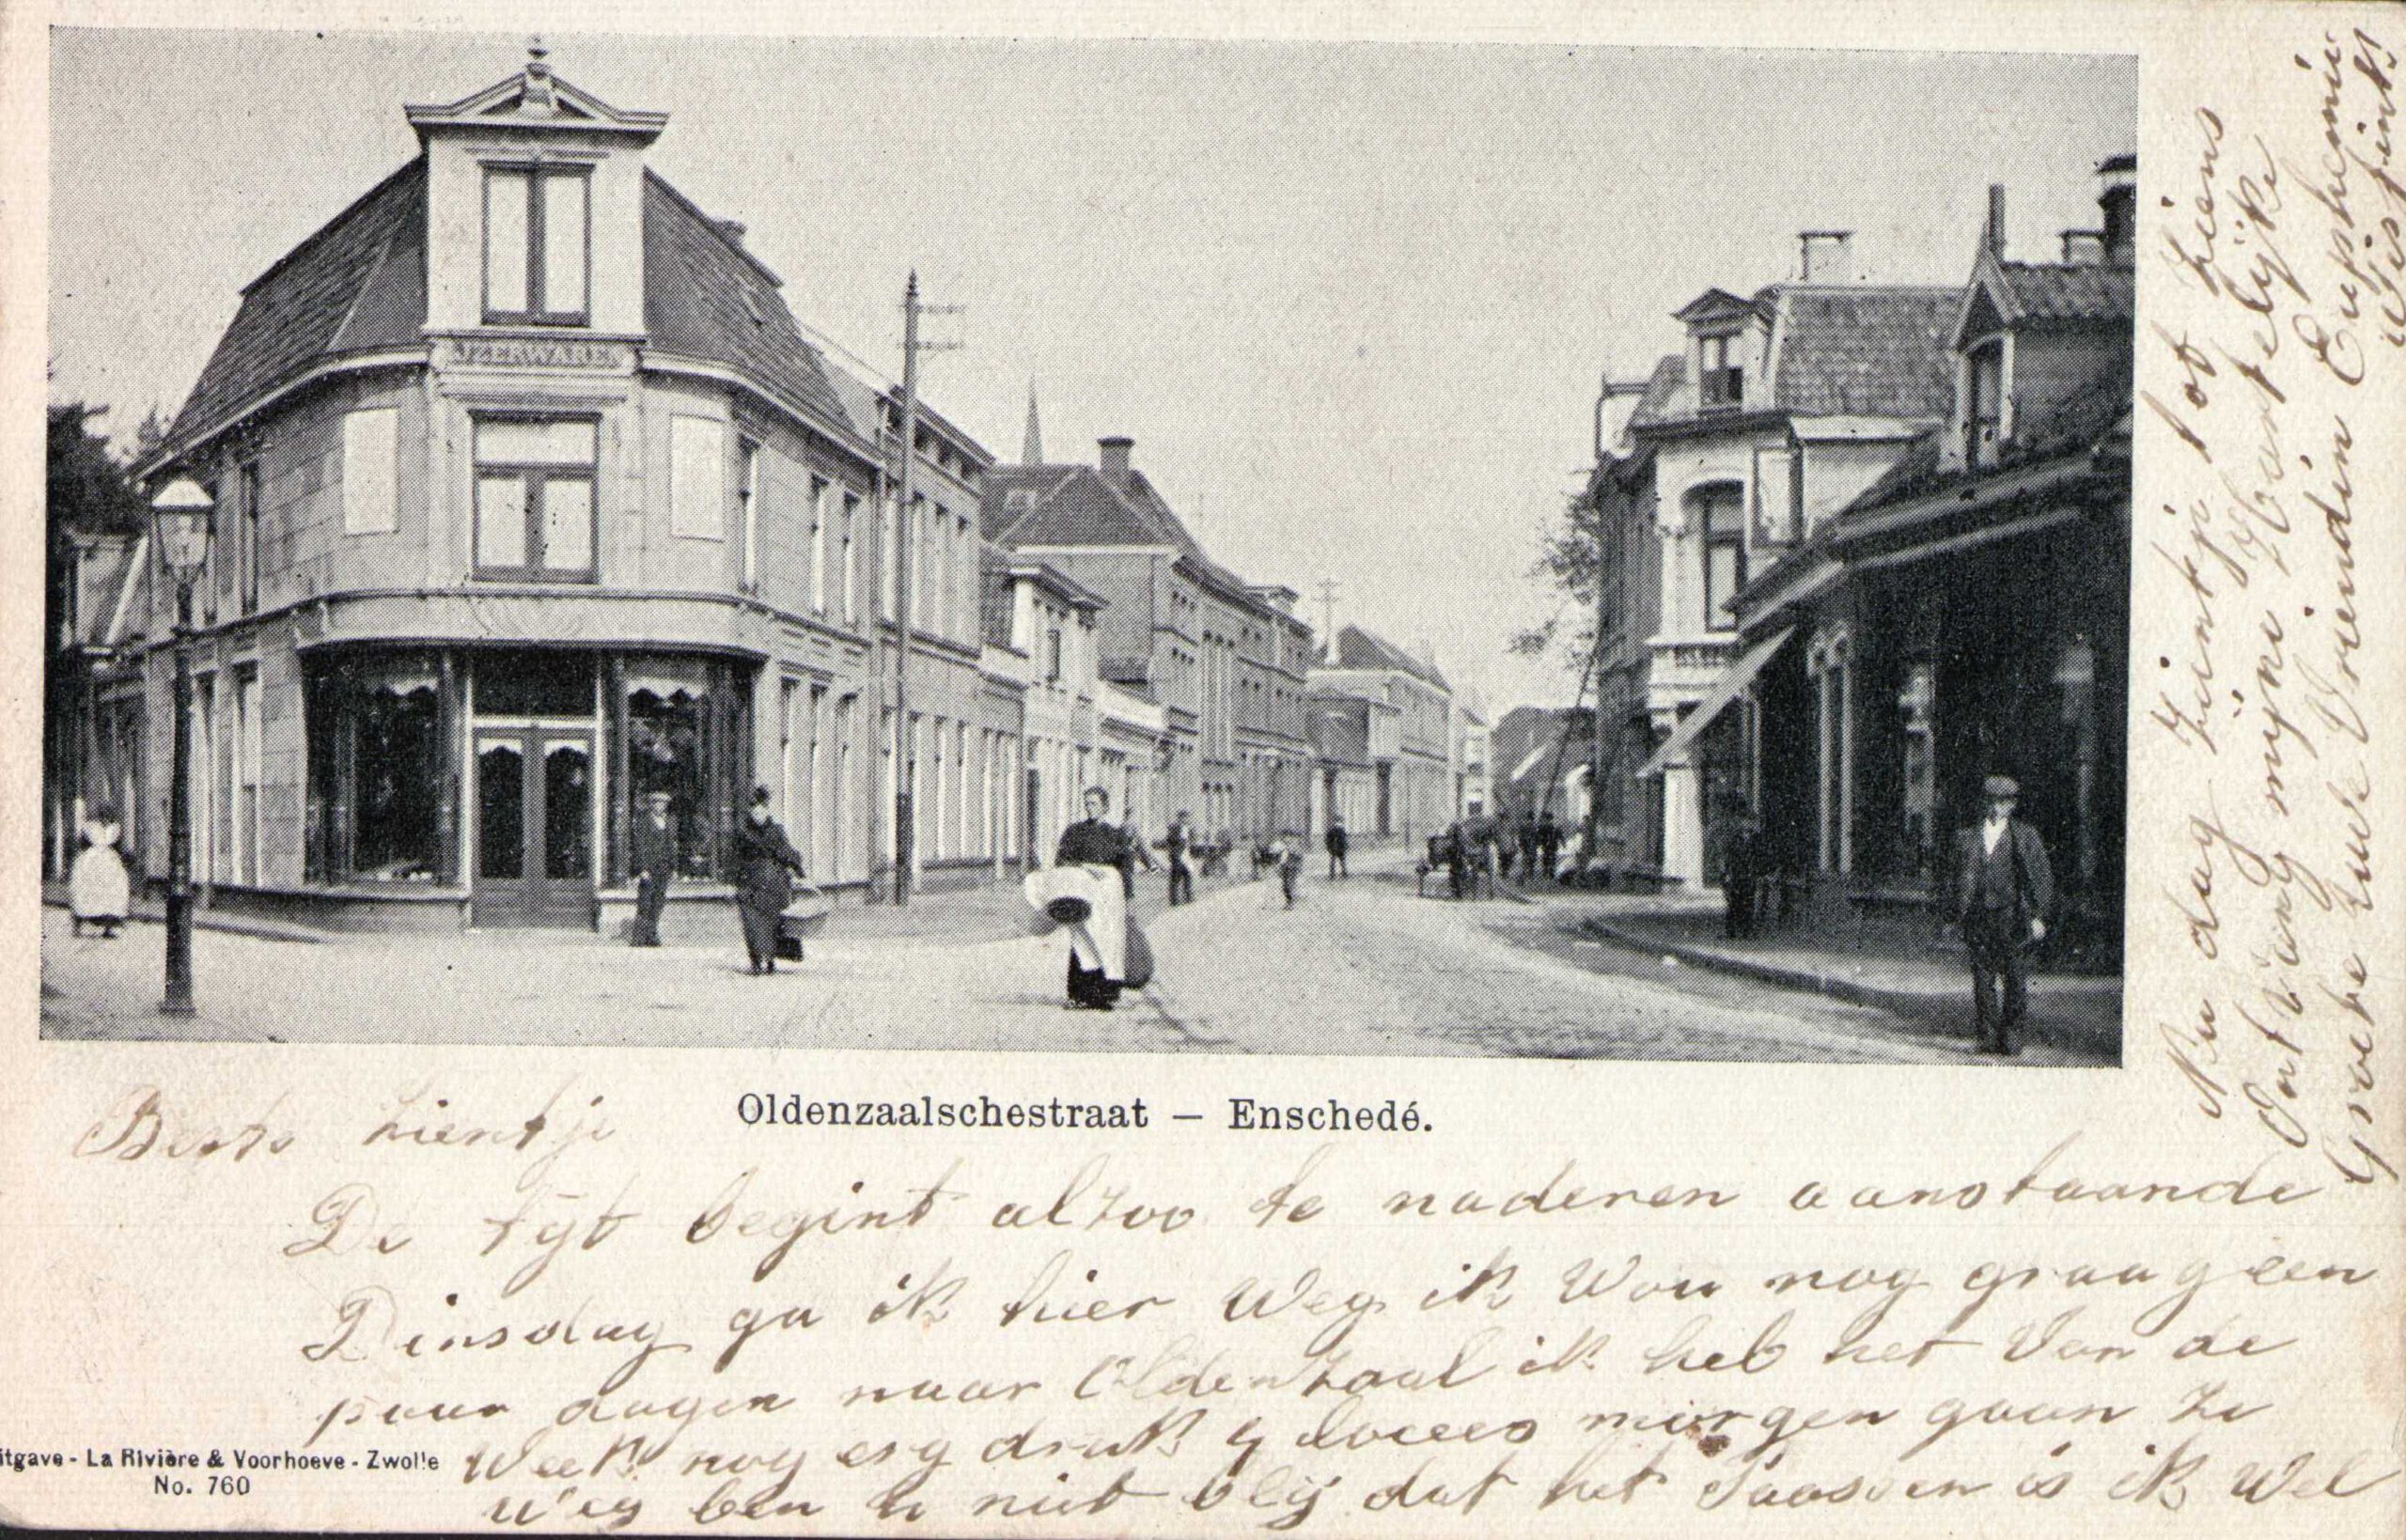 IJZERWAREN
Oldenzaalschestraat — Enschedé.
Beste Lientje
De tijt begint alzoo te naderen aanstaande
Dinsdag ga ik hier Weg ik Wou nog graag een
paar dagen naar Oldenzaal ik heb het Van de
Week nog erg druk morgen gaan ze
weg ben u niet blij dat het Paasschen is ik Wel
Nu dag Lientje tot ziens
Ontvang mijne Hartelijke
Groete uwe Vriendin Euphemia
itgave - La Rivière & Voorhoeve - Zwolle
No. 760